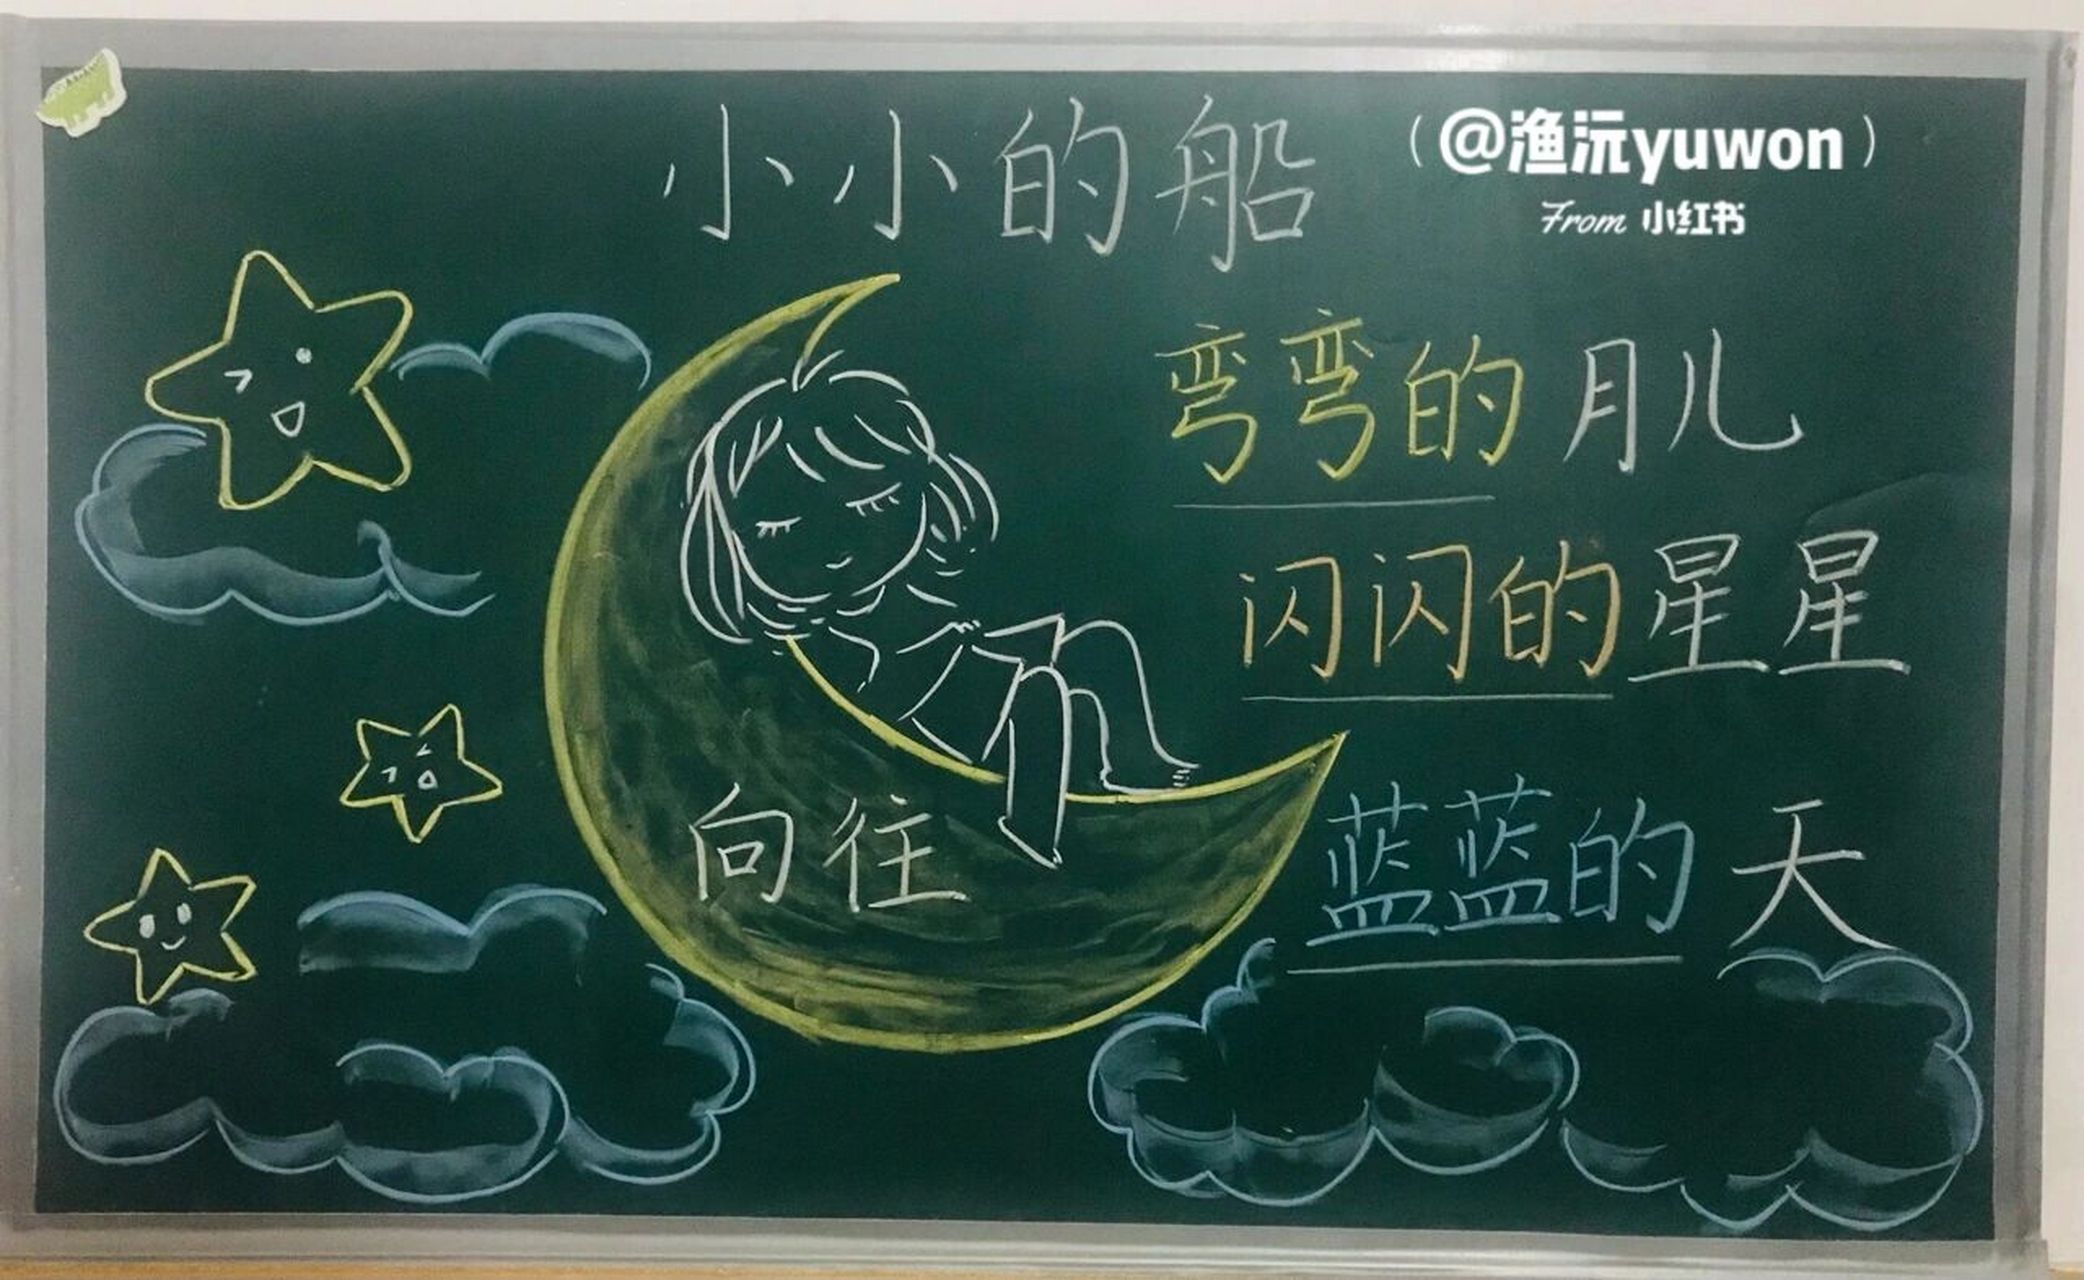 小小的船
(@渔沅yuwon)
From 小红书
弯弯的月儿
闪闪的星星
蓝蓝的天
向往